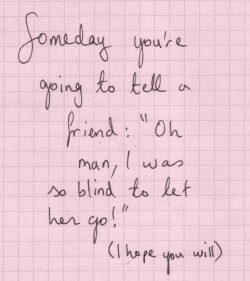 Someday you're
going to tell a
friend: "Oh
man, I was
so blind to let
her go!"
(I hope you will)